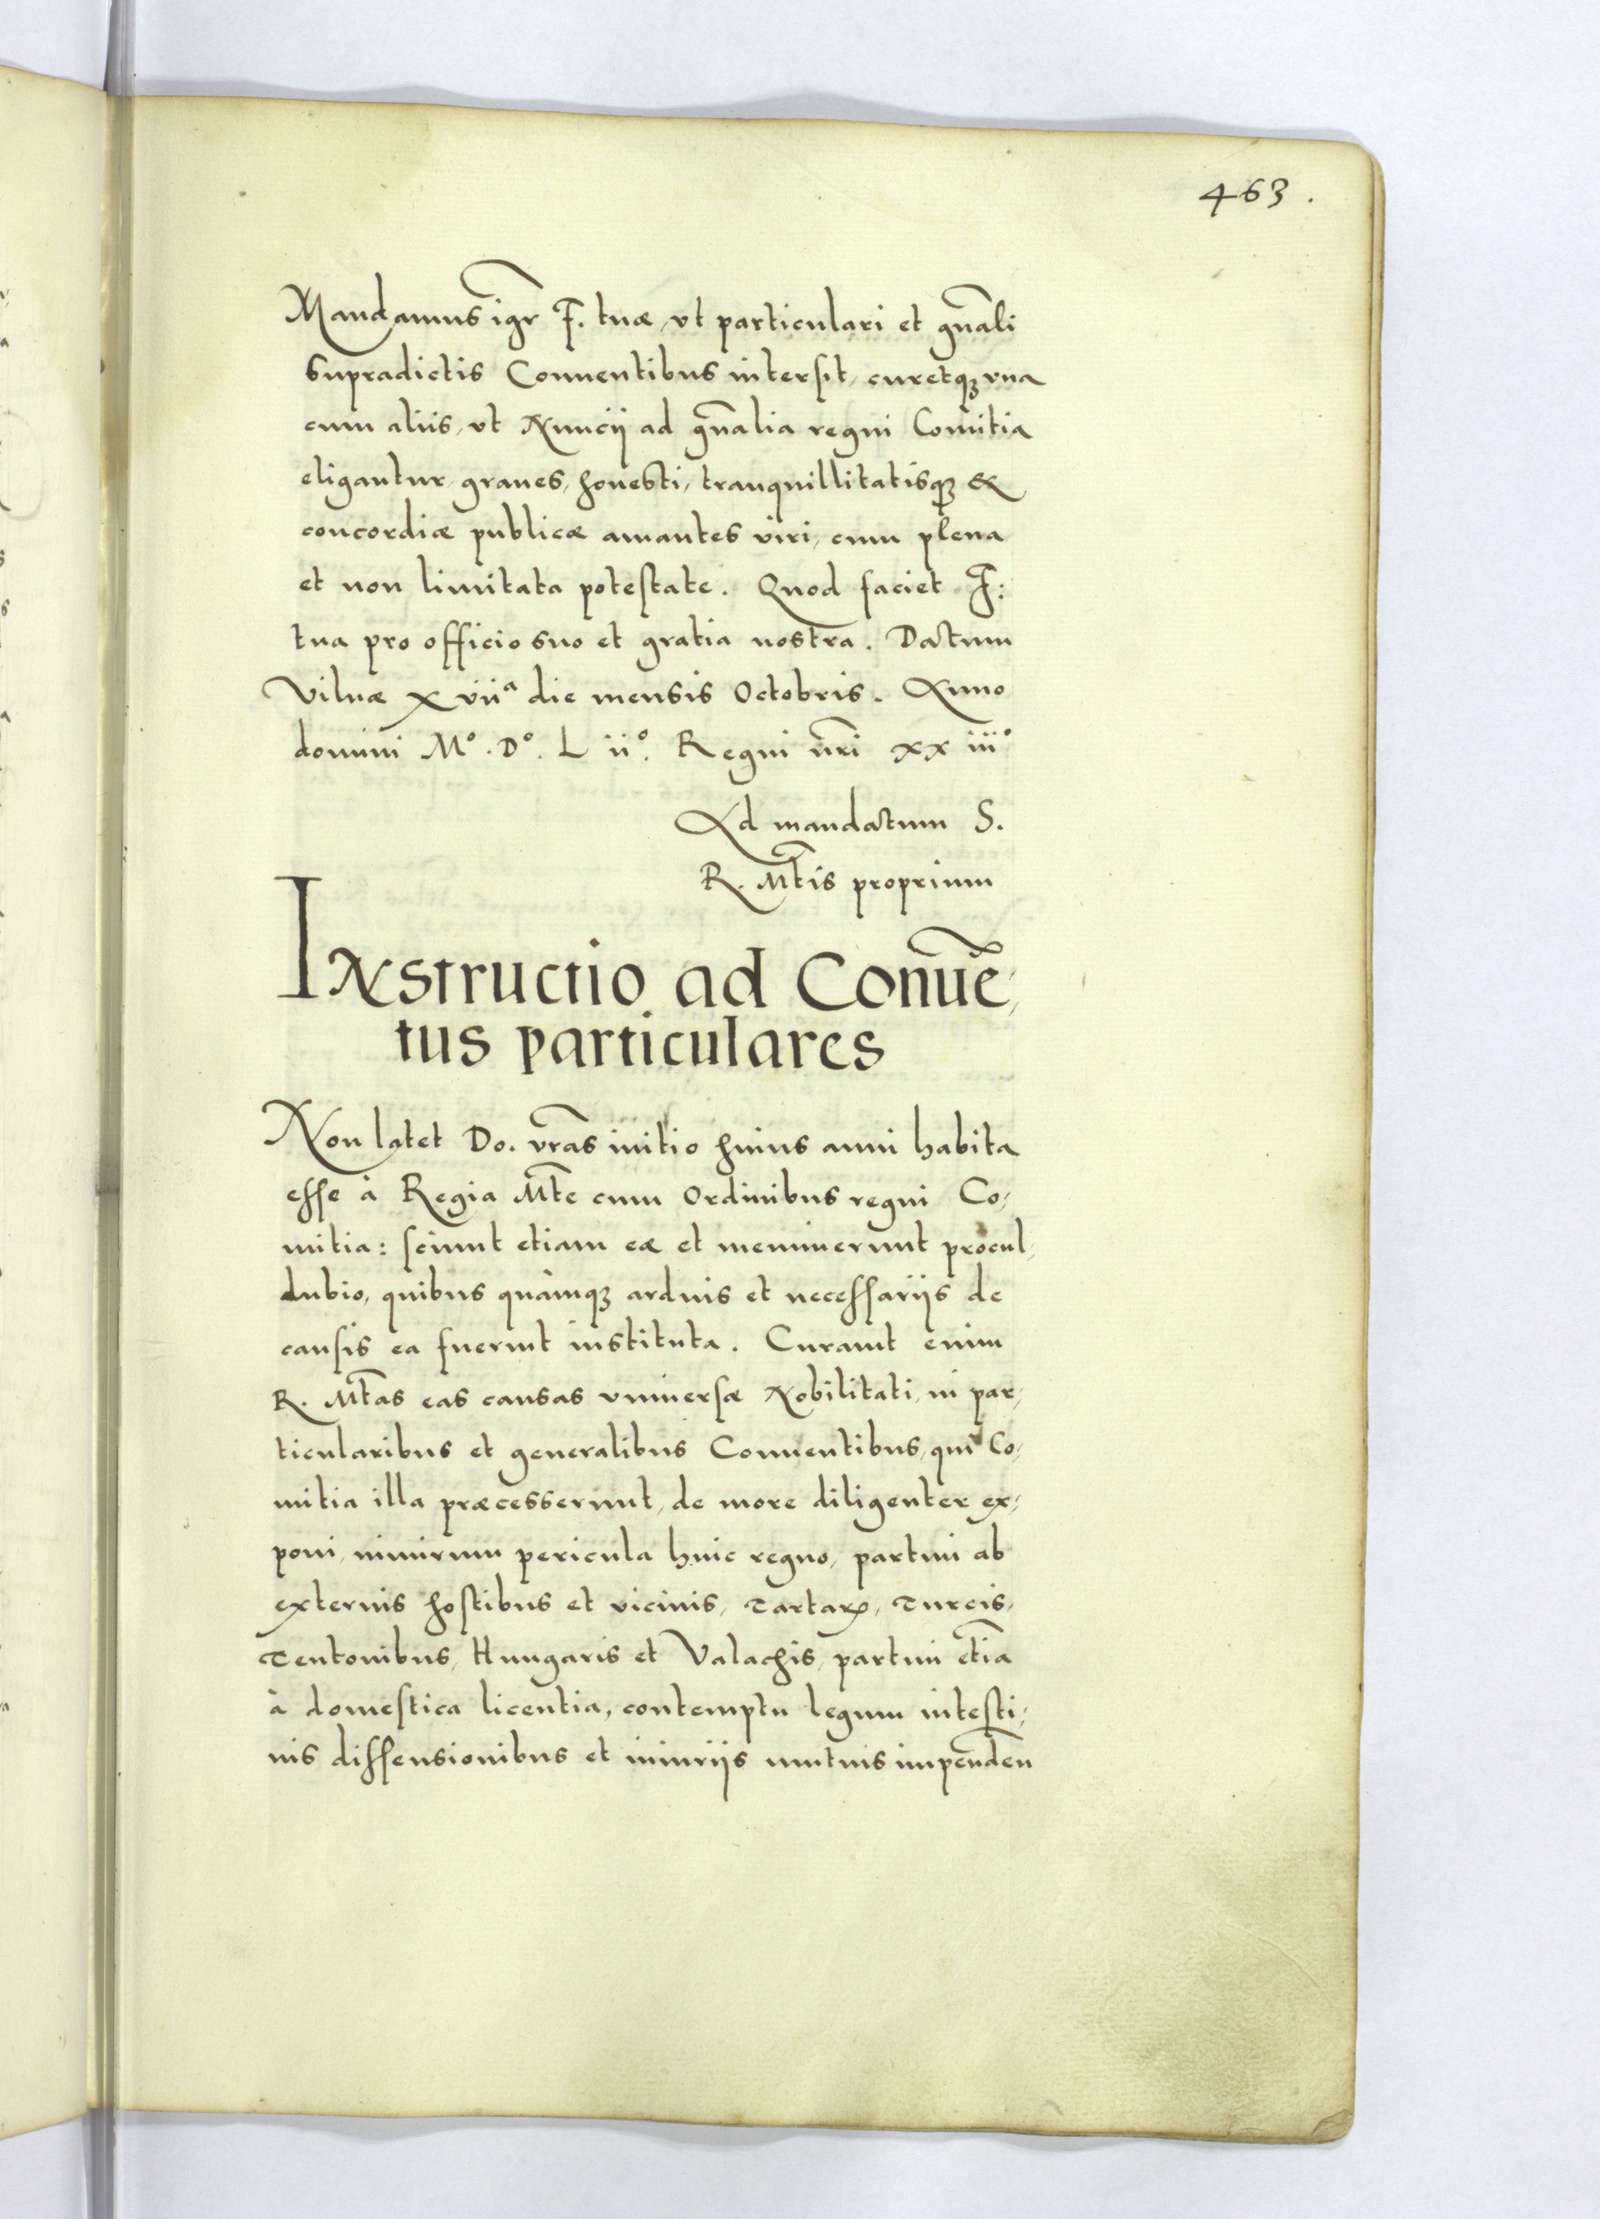 463.
Mandamus igr̃ F. tuæ, vt particulari et gñali
supradictis Conuentibus intersit, curetq́ꝫ vna
cum aliis, vt Nuncij ad gñalia regni Comitia
eligantur, graues, honesti, tranquillitatisqꝫ &
concordiæ publicæ amantes viri, cum plena
et non limitata potestate. Quod faciet F:
tua pro officio suo et gratia nostra. Datum
Vilnæ XVIIª die mensis Octobris. Anno
domini Mº. Dº. L iiº. Regni nr̃i xx iiiº
Ad mandatum S.
R. Mt̃is proprium
Instructio ad Conuē,
tus particulares
Non latet Do. vr̃as initio huius anni habita
esse à Regia Mt̃e cum Ordinibus regni Co,
mitia: sciunt etiam eæ et meminerunt procul,
dubio, quibus quàmqꝫ arduis et necessarijs de
causis ea fuerint instituta. Curauit enim
R. Mt̃as eas causas vniuersæ Nobilitati, in par,
ticularibus et generalibus Conuentibus, qui Co,
mitia illa præcesserunt, de more diligenter ex,
poni, nimirum pericula huic regno, partim ab
externis hostibus et vicinis, Tartaꝝ, Turcis,
Teutonibus, Hungaris et Valachis, partim etiā
à domestica licentia, contemptu legum intesti,
nis dissensionibus et iniurijs mutuis impendeñ